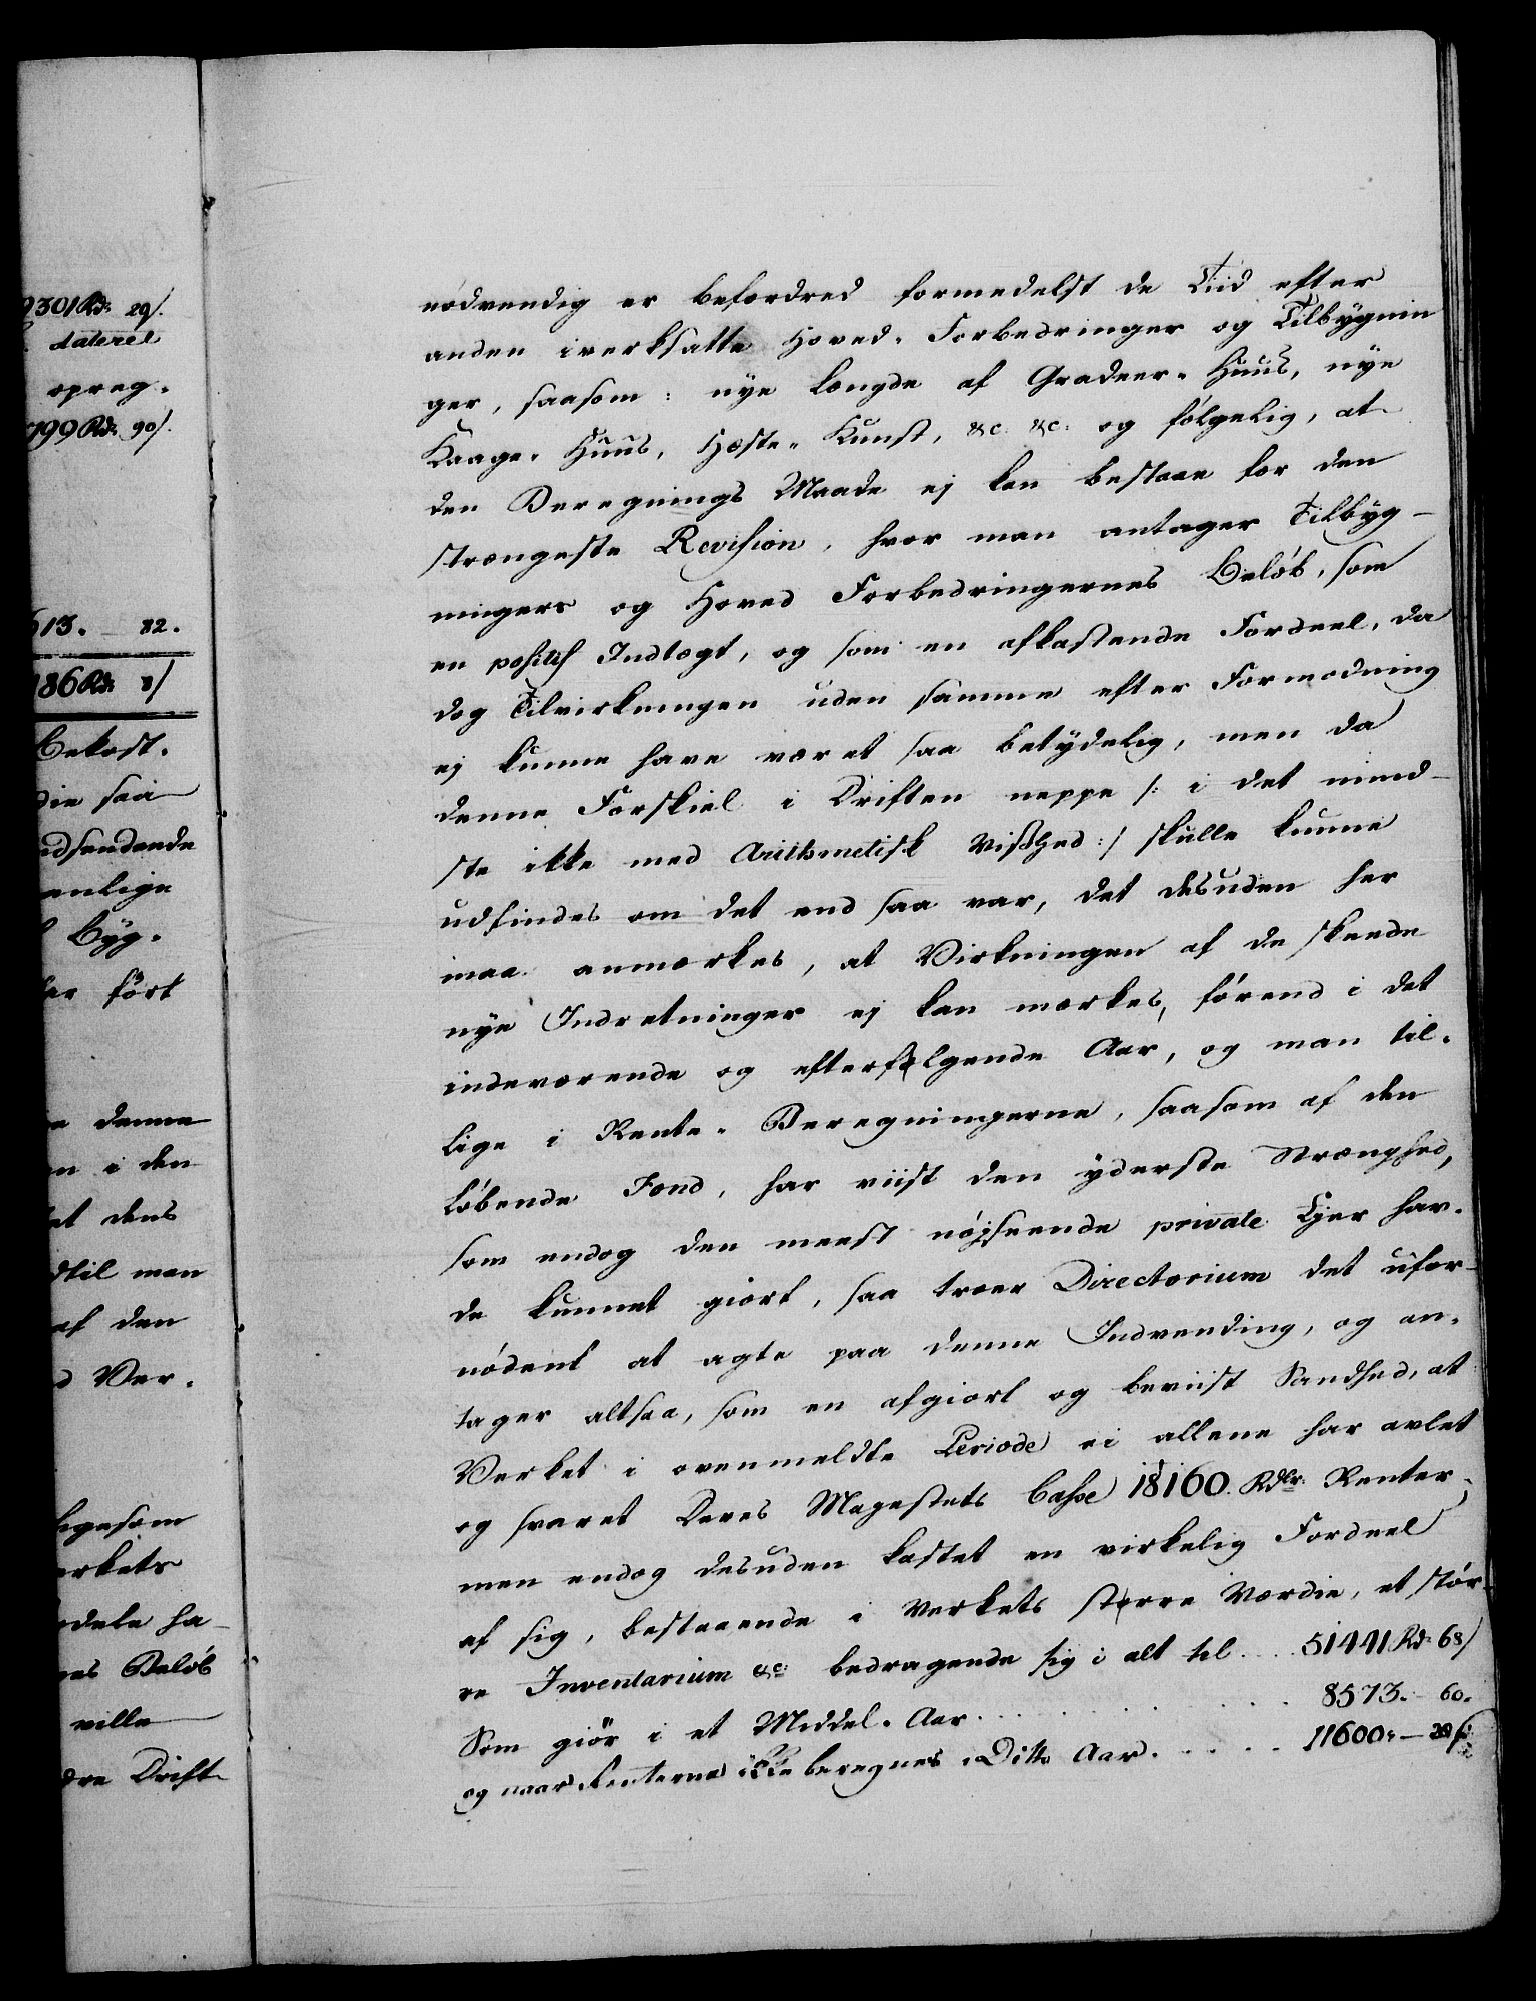 9301 Rd: 29/.
daterel
opreg-
799 Rd: 90/.
613. — 82.
186 Rd: 8/
bekost-
die saa
udsendende
enlige
Byg-
ført
denne
i den
et dens
dtil man
af den
Ver-
ligesom
erkets
dele ha-
Beløb
ville
dre Drift
nødvendig er befordred formedelst de Tiid efter
anden iverksatte Hoved-Forbedringer og Tilbygnin
ger, saasom: nye Længde af Gradeer-Huus, nye
Kaage-Huus, Heste-Kunst, &c. &c. og følgelig, at
den Beregnings Maade ej kan bestaae for den
strængeste Revision, hvor man antager Tilbyg-
ningers og Hoved Forbedringernes Beløb, som
en positif Indtægt, og som en afkastende Fordeel, da
dog Tilvirkningen uden samme efter Formodning
ej kunne have været saa betydelig, men da
denne Forskiel i Driften neppe /: i det mind-
ste ikke med Arithmetisk Vished :/ skulle kunne
udfindes om det end saa var, det desuden her
maa anmærkes, at Virkningen af de skeede
nye Indretninger ej kan mærkes, førend i det
indeværende og efterfølgende Aar, og man til-
lige i Rente-Beregningerne, saasom af den
løbende Fond, har viist den yderste Strænghed,
som endog den meest nøjseende private Ejer hav-
de kunnet giort, saa troer Directorium det ufor-
nødent at agte paa denne Indvending, og an-
tager altsaa, som en afgiort og beviist Sandhed, at
Verket i ovenmeldte Periode ei allene har avlet
og svaret Deres Majestets Casse 18160 Rdlr: Renter,
men endog desuden kastet en virkelig Fordeel
af sig, bestaaende i Verkets større Værdie, et stør-
re Inventarium &c: bedragende sig i alt til .... 51441 Rd: 68/
Som giør i et Middel-Aar ........... 8573. — 60.
og naar Renterne ikke beregnes i Ditto Aar ...... 11600. —